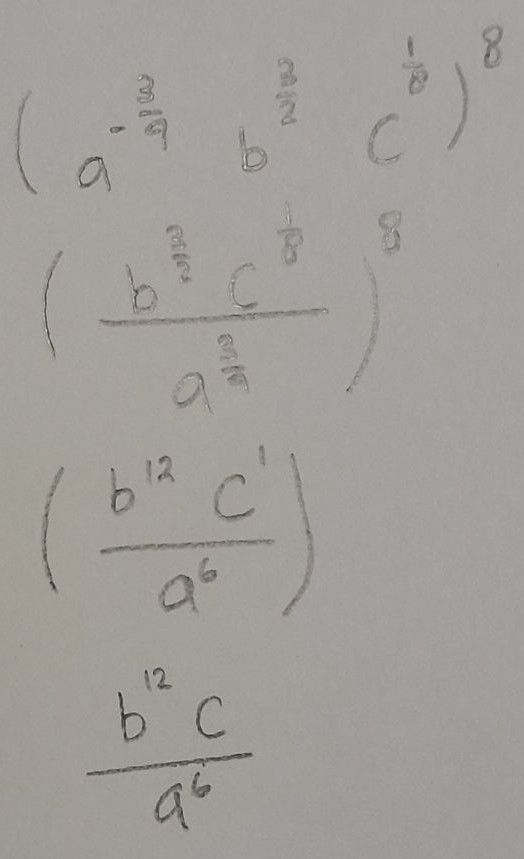 (a^{-\frac{3}{4}} b^{\frac{3}{2}} c^{\frac{1}{8}})^8
(\frac{b^{\frac{3}{2}} c^{\frac{1}{8}}}{a^{\frac{3}{4}}})^8
(\frac{b^{12} c^1}{a^6})
\frac{b^{12} c}{a^6}